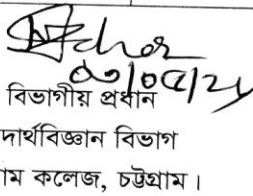 বিভাগীয় প্রধান
দার্থবিজ্ঞান বিভাগ
াম কলেজ, চট্টগ্রাম।